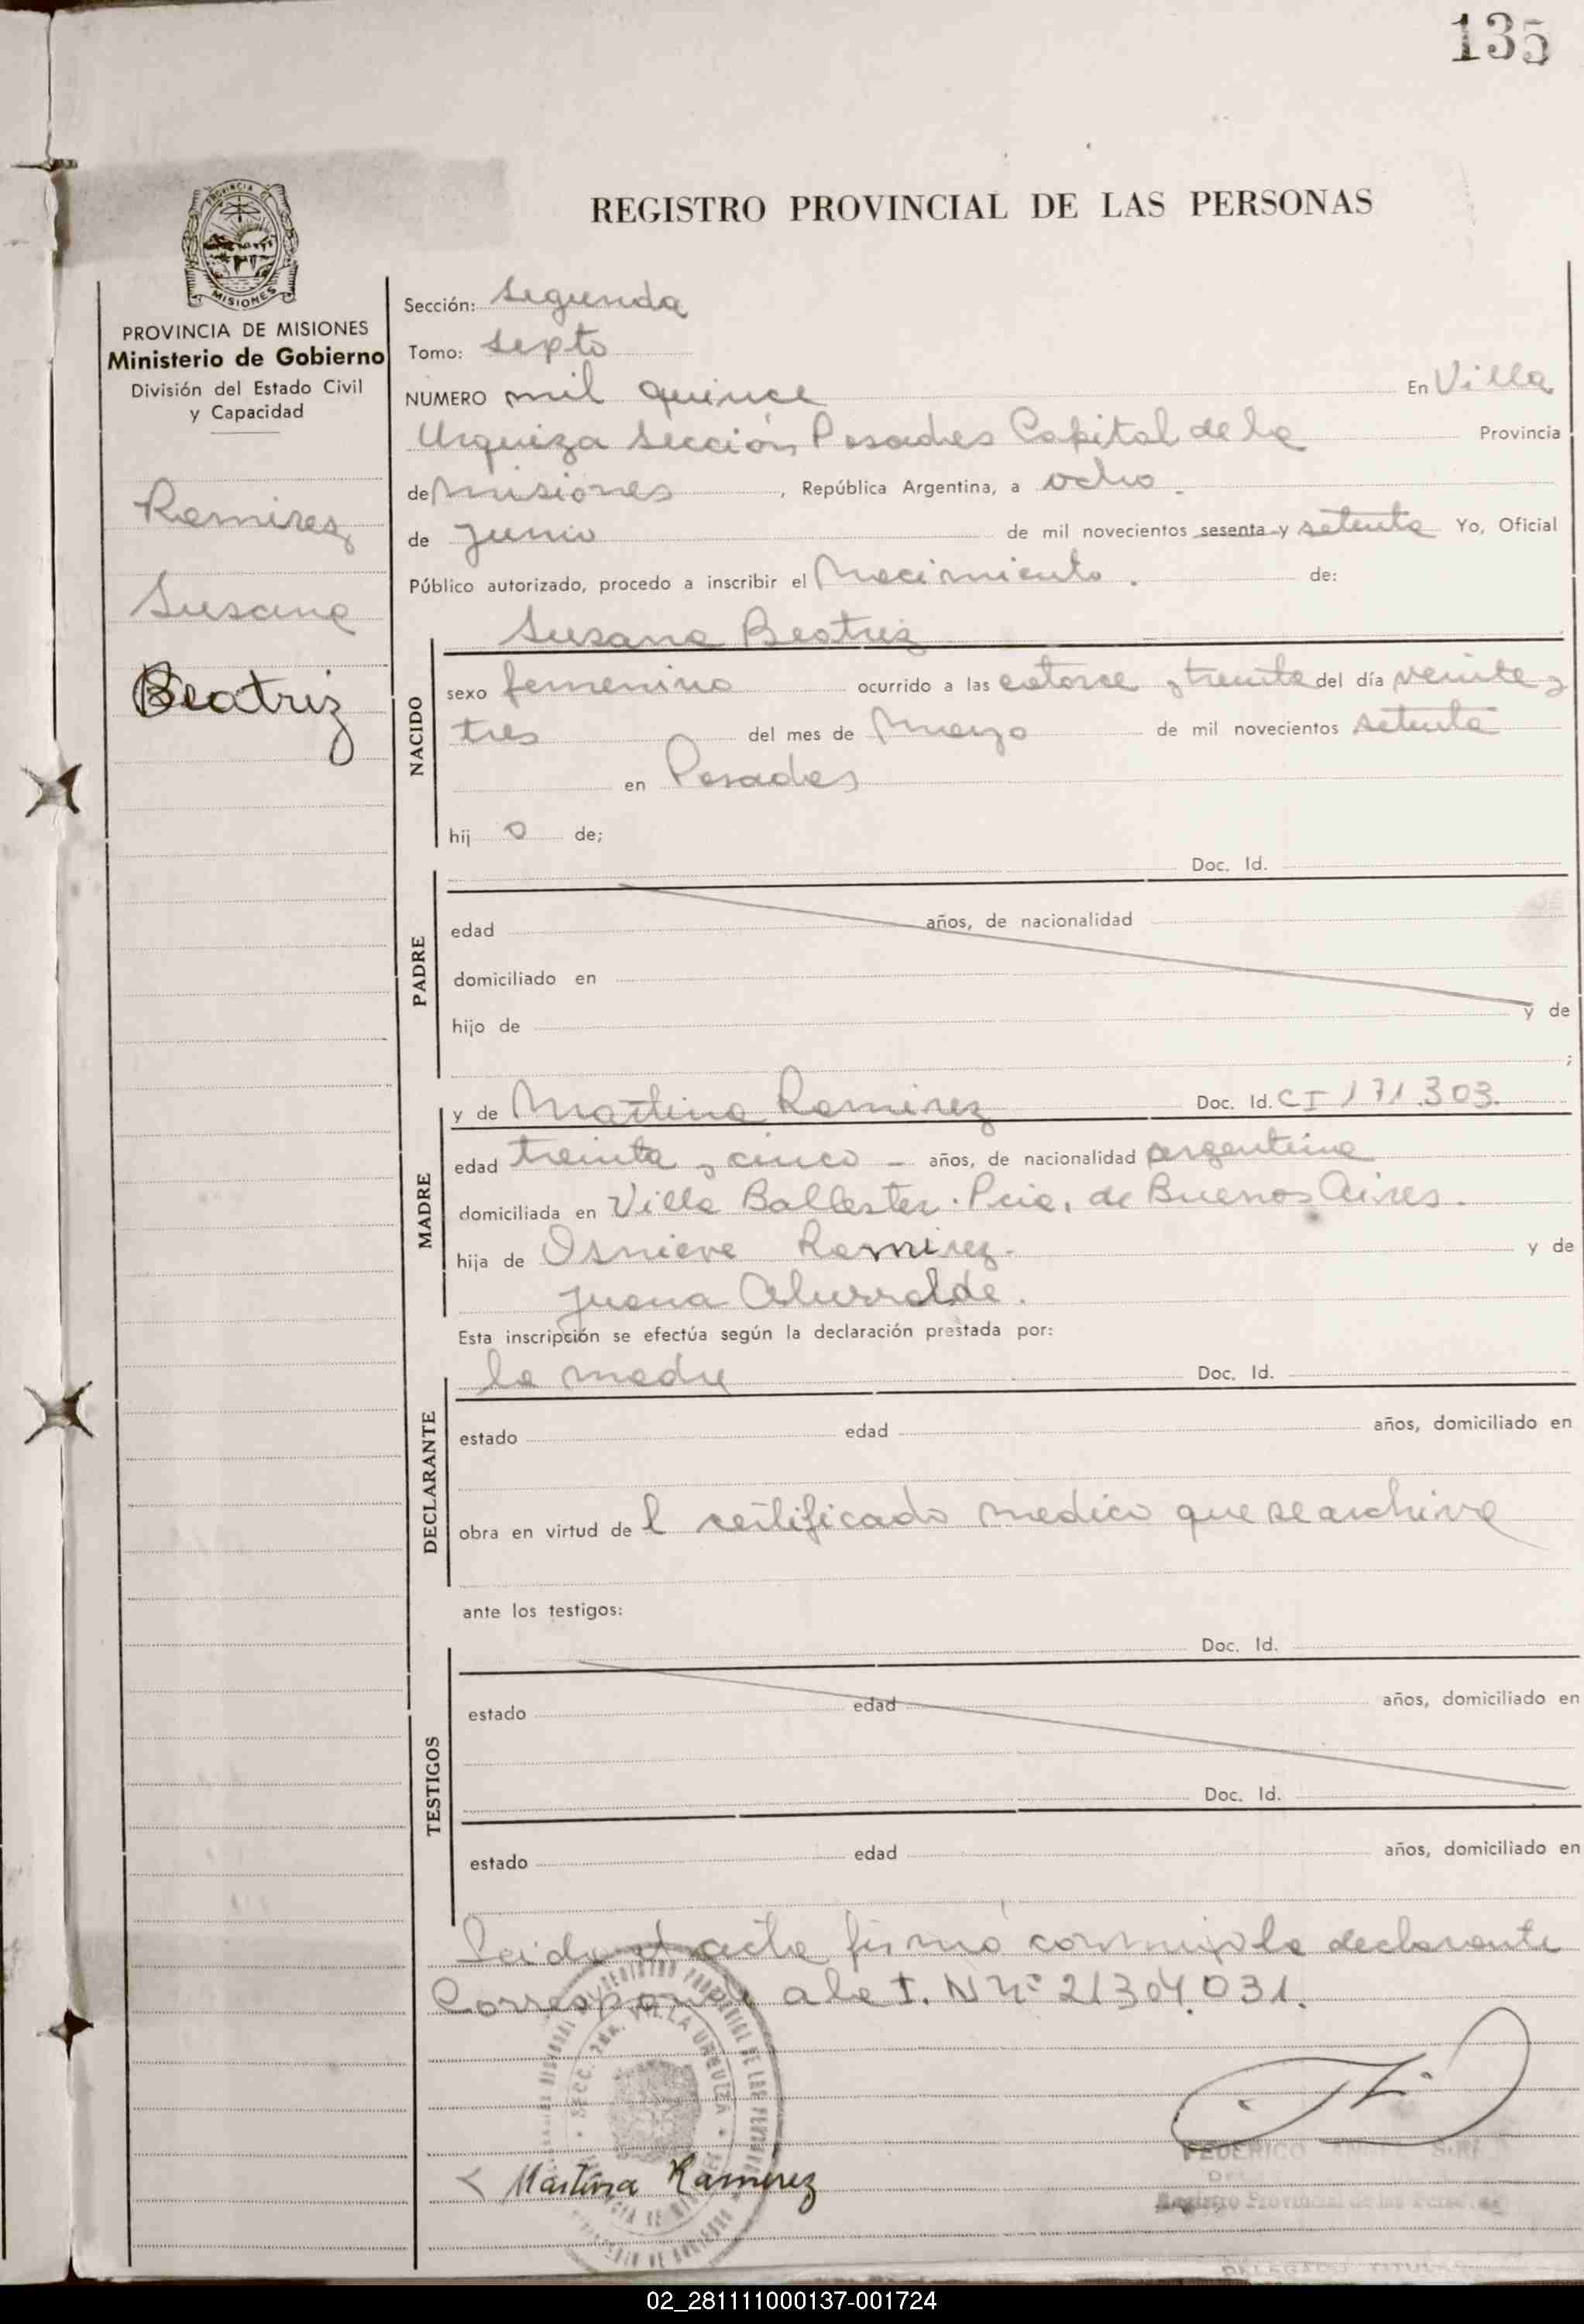 135
PROVINCIA
MISIONES
REGISTRO PROVINCIAL DE LAS PERSONAS
PROVINCIA DE MISIONES
Ministerio de Gobierno
División del Estado Civil
y Capacidad
Ramirez
Susana
Beatriz
Sección: Segunda
Tomo: septo
NUMERO mil quince En Villa
Urquiza Sección Posadas Capital de la Provincia
de Misiones, República Argentina, a ocho.
de Junio de mil novecientos sesenta y setenta Yo, Oficial
Público autorizado, procedo a inscribir el Nacimiento. de:
NACIDO
Susana Beatriz
sexo femenino ocurrido a las catorce y treinta del día veinte y
tres del mes de Marzo de mil novecientos setenta
en Posadas
hij o de;
PADRE
Doc. Id.
edad años, de nacionalidad
domiciliado en
hijo de y de
;
MADRE
y de Martina Ramirez Doc. Id. CI 171.303.
edad treinta y cinco - años, de nacionalidad argentina
domiciliada en Villa Ballester. Pcia. de Buenos Aires.
hija de Ramirez. y de
Juana
Esta inscripción se efectúa según la declaración prestada por:
DECLARANTE
la madre Doc. Id.
estado edad años, domiciliado en
obra en virtud de l certificado medico que se archiva
ante los testigos:
TESTIGOS
Doc. Id.
estado edad años, domiciliado en
Doc. Id.
estado edad años, domiciliado en
Leida el acta firmó conmigo la declarante
Corresponde a la I. N Nº 21304.031.
REGISTRO PROVINCIAL DE LAS PERSONAS
SECC. 2da. VILLA URQUIZA
Martina Ramirez
FEDERICO
Registro Provincial de las Personas
DELEGADO TITULAR
02_281111000137-001724